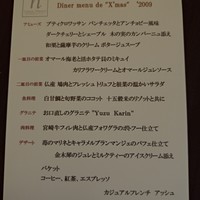 n
Diner menu de "X'mas" '2009
アミューズ プティクロワッサン パンチェッタとアンチョビー風味
ダークチェリーとシェーブル 木の実のカンパーニュ添え
和栗と蕪芋のクリーム ポタージュスープ
一皿目の前菜 オマール海老と活ホタテ貝のキュイ
カリフラワークリームとオマールジュレソース
二皿目の前菜 仏産 鳩肉とフレッシュトリュフと根菜の温かいサラダ
魚料理 白甘鯛と旬野菜のココット 十五穀米のリゾットと共に
グラニテ お口直しのグラニテ "Yuzu Karin"
肉料理 宮崎牛フィレ肉と仏産フォワグラのポトフー仕立て
デザート 苺のマリネとキャラメルブランマンジェのパフェ仕立て
金木犀のジュレとミルクティーのアイスクリーム添え
バケット
コーヒー、紅茶、エスプレッソ
カジュアルフレンチ アッシュ